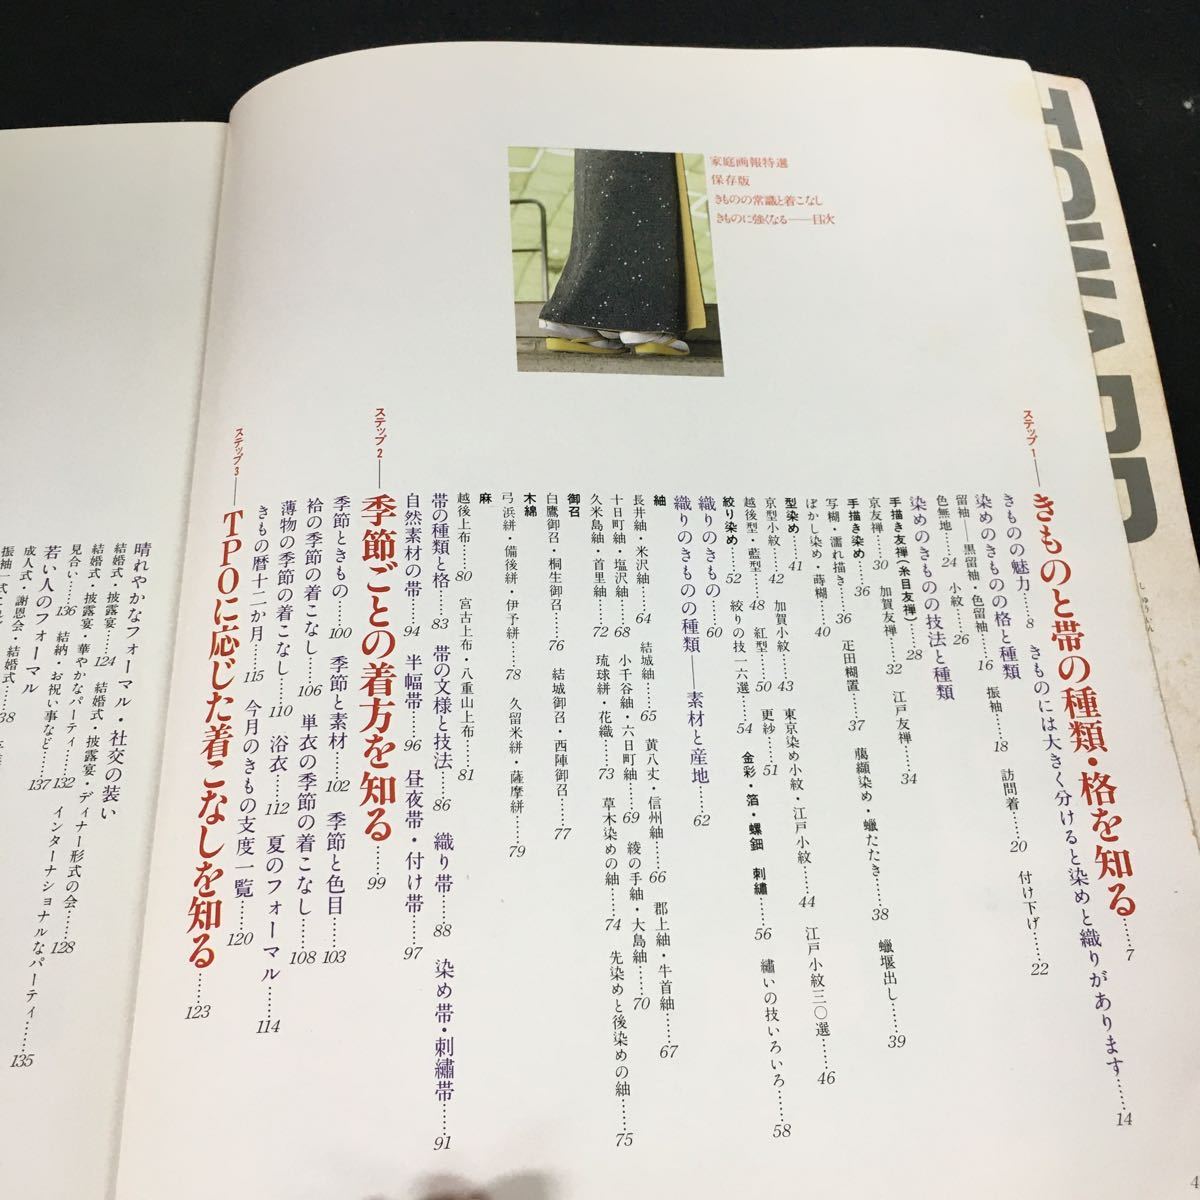 家庭画報特選
保存版
きものの常識と着こなし
きものに強くなる——目次
ステップ1——きものと帯の種類・格を知る……7
きものの魅力……8　きものには大きく分けると染めと織りがあります……14
染めのきものの格と種類
留袖——黒留袖・色留袖……16　振袖……18　訪問着……20　付け下げ……22
色無地……24　小紋……26
染めのきものの技法と種類
手描き友禅(糸目友禅)……28
京友禅……30　加賀友禅……32　江戸友禅……34
手描き染め……36
写糊・濡れ描き……36　疋田糊置……37　﨟纈染め・蠟たたき……38　蠟堰出し……39
ぼかし染め・蒔糊……40
型染め……41
京型小紋……42　加賀小紋……43　東京染め小紋・江戸小紋……44　江戸小紋三〇選……46
越後型・藍型……48　紅型……50　更紗……51
絞り染め……52　絞りの技一六選……54　金彩・箔・螺鈿　刺繡……56　繡いの技いろいろ……58
織りのきもの……60
織りのきものの種類——素材と産地……62
紬
長井紬・米沢紬……64　結城紬……65　黄八丈・信州紬……66　郡上紬・牛首紬……67
十日町紬・塩沢紬……68　小千谷紬・六日町紬……69　綾の手紬・大島紬……70
久米島紬・首里紬……72　琉球絣・花織……73　草木染めの紬……74　先染めと後染めの紬……75
御召
白鷹御召・桐生御召……76　結城御召・西陣御召……77
木綿
弓浜絣・備後絣・伊予絣……78　久留米絣・薩摩絣……79
麻
越後上布……80　宮古上布・八重山上布……81
帯の種類と格……83　帯の文様と技法……86　織り帯……88　染め帯・刺繡帯……91
自然素材の帯……94　半幅帯……96　昼夜帯・付け帯……97
ステップ2——季節ごとの着方を知る……99
季節ときもの……100　季節と素材……102　季節と色目……103
袷の季節の着こなし……106　単衣の季節の着こなし……108
薄物の季節の着こなし……110　浴衣……112　夏のフォーマル……114
きもの暦十二か月……115　今月のきもの支度一覧……120
ステップ3——TPOに応じた着こなしを知る……123
晴れやかなフォーマル・社交の装い
結婚式・披露宴……124　結婚式・披露宴・ディナー形式の会……128
結婚式・披露宴・華やかなパーティ……132　インターナショナルなパーティ……135
見合い……136　結納・お祝い事など……137
若い人のフォーマル
成人式　謝恩会・結婚式……138
4
TOWA